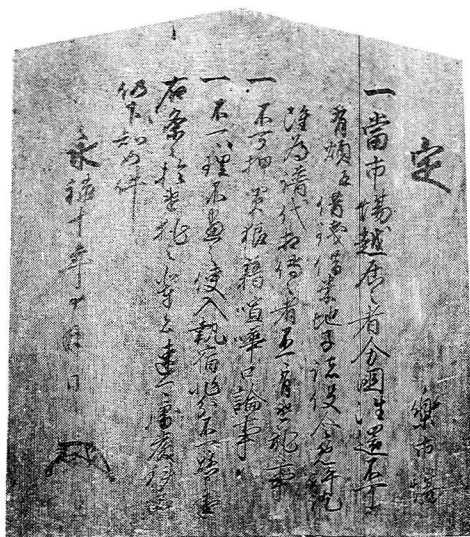 定　樂市場
一當市場越居之者分國往還不可
有煩并借銭借米地子諸役令免許訖
雖為譜代相傳之者不可有違乱之事
一不可押買狼藉喧嘩口論事
一不可理不尽之使入執宿非分不可懸申事
右条々於違犯之輩者速可處厳科者也
仍下知如件
永禄十年十月日